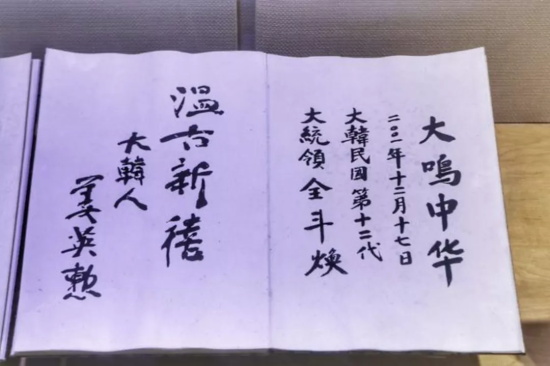 大鳴中华
二〇〇一年十二月十七日
大韓民國第十二代
大統領全斗焕
温古新禧
大韓人
姜英勲